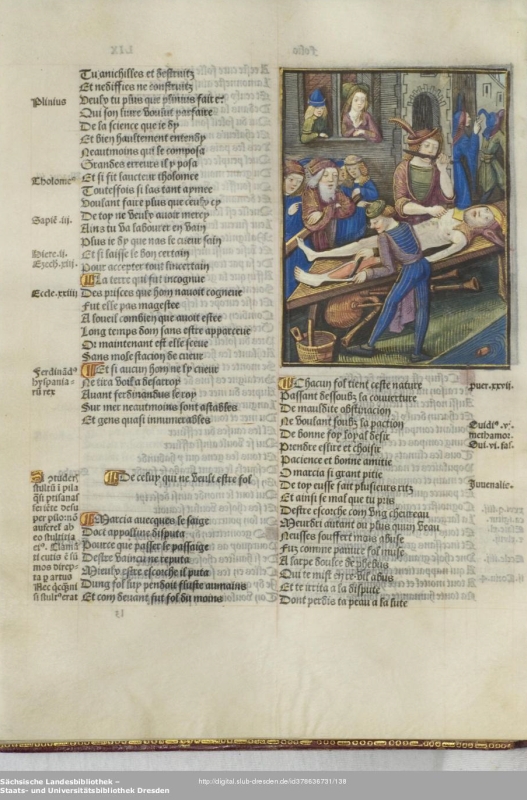 Tu anichilles et destruitz
Et nediffies ne construitz
Plinius
Veulx tu plus que plinius faire
Qui son livre voulut parfaire
De la science que ie dy
Et bien haultement entendy
Neautmoins qui le composa
Grandes erreurs il y posa
Tholomeᵒ
Et si fit laucteur tholomee
Toutesfois si las tant aymee
Voulant faire plus que ceulx cy
De toy ne veulx avoir mercy
Sapiē .iii.
Ains tu va labourer en vain
Plus ie dy que nas le cueur sain
Et si laisse le bon certain
Pour accepter tout lincertain
La terre qui fut incogneue
Eccle.xxiii
Des prisces que hom navoit cogneue
Fut elle pas magestee
A soueil combien que avoit estee
Long temps dont sans estre apparceue
Or maintenant est elle sceue
Sans molestacion de cueur
Ferdinādᵒ
hyspania⸗
rū rex
Et si aucun hom ne ly cueur
Ne tira voilla desarroy
Avant ferdinandus le roy
Sur mer neautmoins sont astables
Et gens quasi innumerables
De celuy qui ne veult estre fol
Marcia avecques le saige
Doct appolline disputa
Pource que passer le passaige
Destre vaincu ne reputa
Mieulx estre escorche il puta
Dung fol luy pendoit fluste aumains
Et com devant fut fol du moins
Chacun fol tient ceste nature
puer.xxvii.
Passant dessoubz la couverture
De mauldite obstinacion
Ne voulant soubz sa paction
De bonne foy loyal desir
methamor.
Prendre eslire et choisir
Pacience et bonne amitie
O marcia si grant pitie
Juvenalis.
De toy eusse fait plusieurs ritz
Et ainsi le mal que tu pris
Destre escorche com ung chevreau
Meurdri autant ou plus quun veau
Neusses souffert mais abuse
Fuz comme pauvre fol muse
A sarpe doulce de phebus
Qui te mist en ce vil abus
Et te irrita a la dispute
Dont perdis ta peau a la lute
Sächsische Landesbibliothek –
Staats- und Universitätsbibliothek Dresden
http://digital.slub-dresden.de/id378636731/138